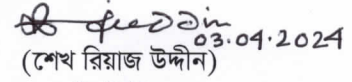 03.04.2024
(শেখ রিয়াজ উদ্দীন)